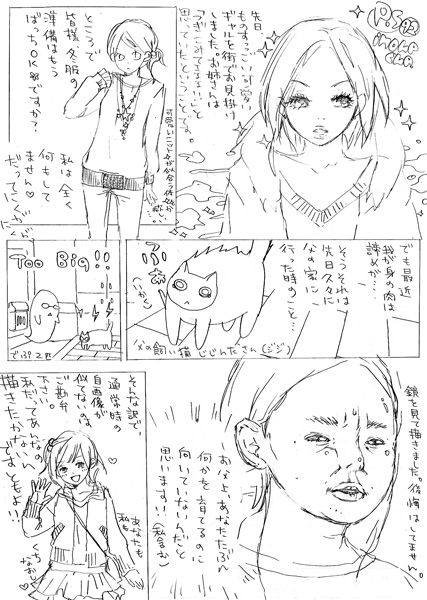 P.S
先日
ものすっごい可愛い
ギャルを街でお見掛け
しました。お姉さんは
思っていたというです。
ところで
皆様 冬服の
準備はもう
ばっちOKですか?
私は全く
何もして
ません♡
だって
でも最近
我が身の肉は
諦めが…
そうそれは
先日久々に
父の家に
行った時のこと…
ぶあ
(いかく)
父の飼い猫 じじんたさん(ジジ)
Too Big!!
でぶ2匹
鏡を見て描きました。後悔はしてません。
お父よ、あなたたぶん
何かを育てるのに
向いていないんだと
思います!!(私含む)
そんな訳で
通常時の
自画像が
似てないのは、
ご勘弁
下さい。
私だってあんなの
描きたかない
ですとも…!!
あなたも
私も
くちなおし